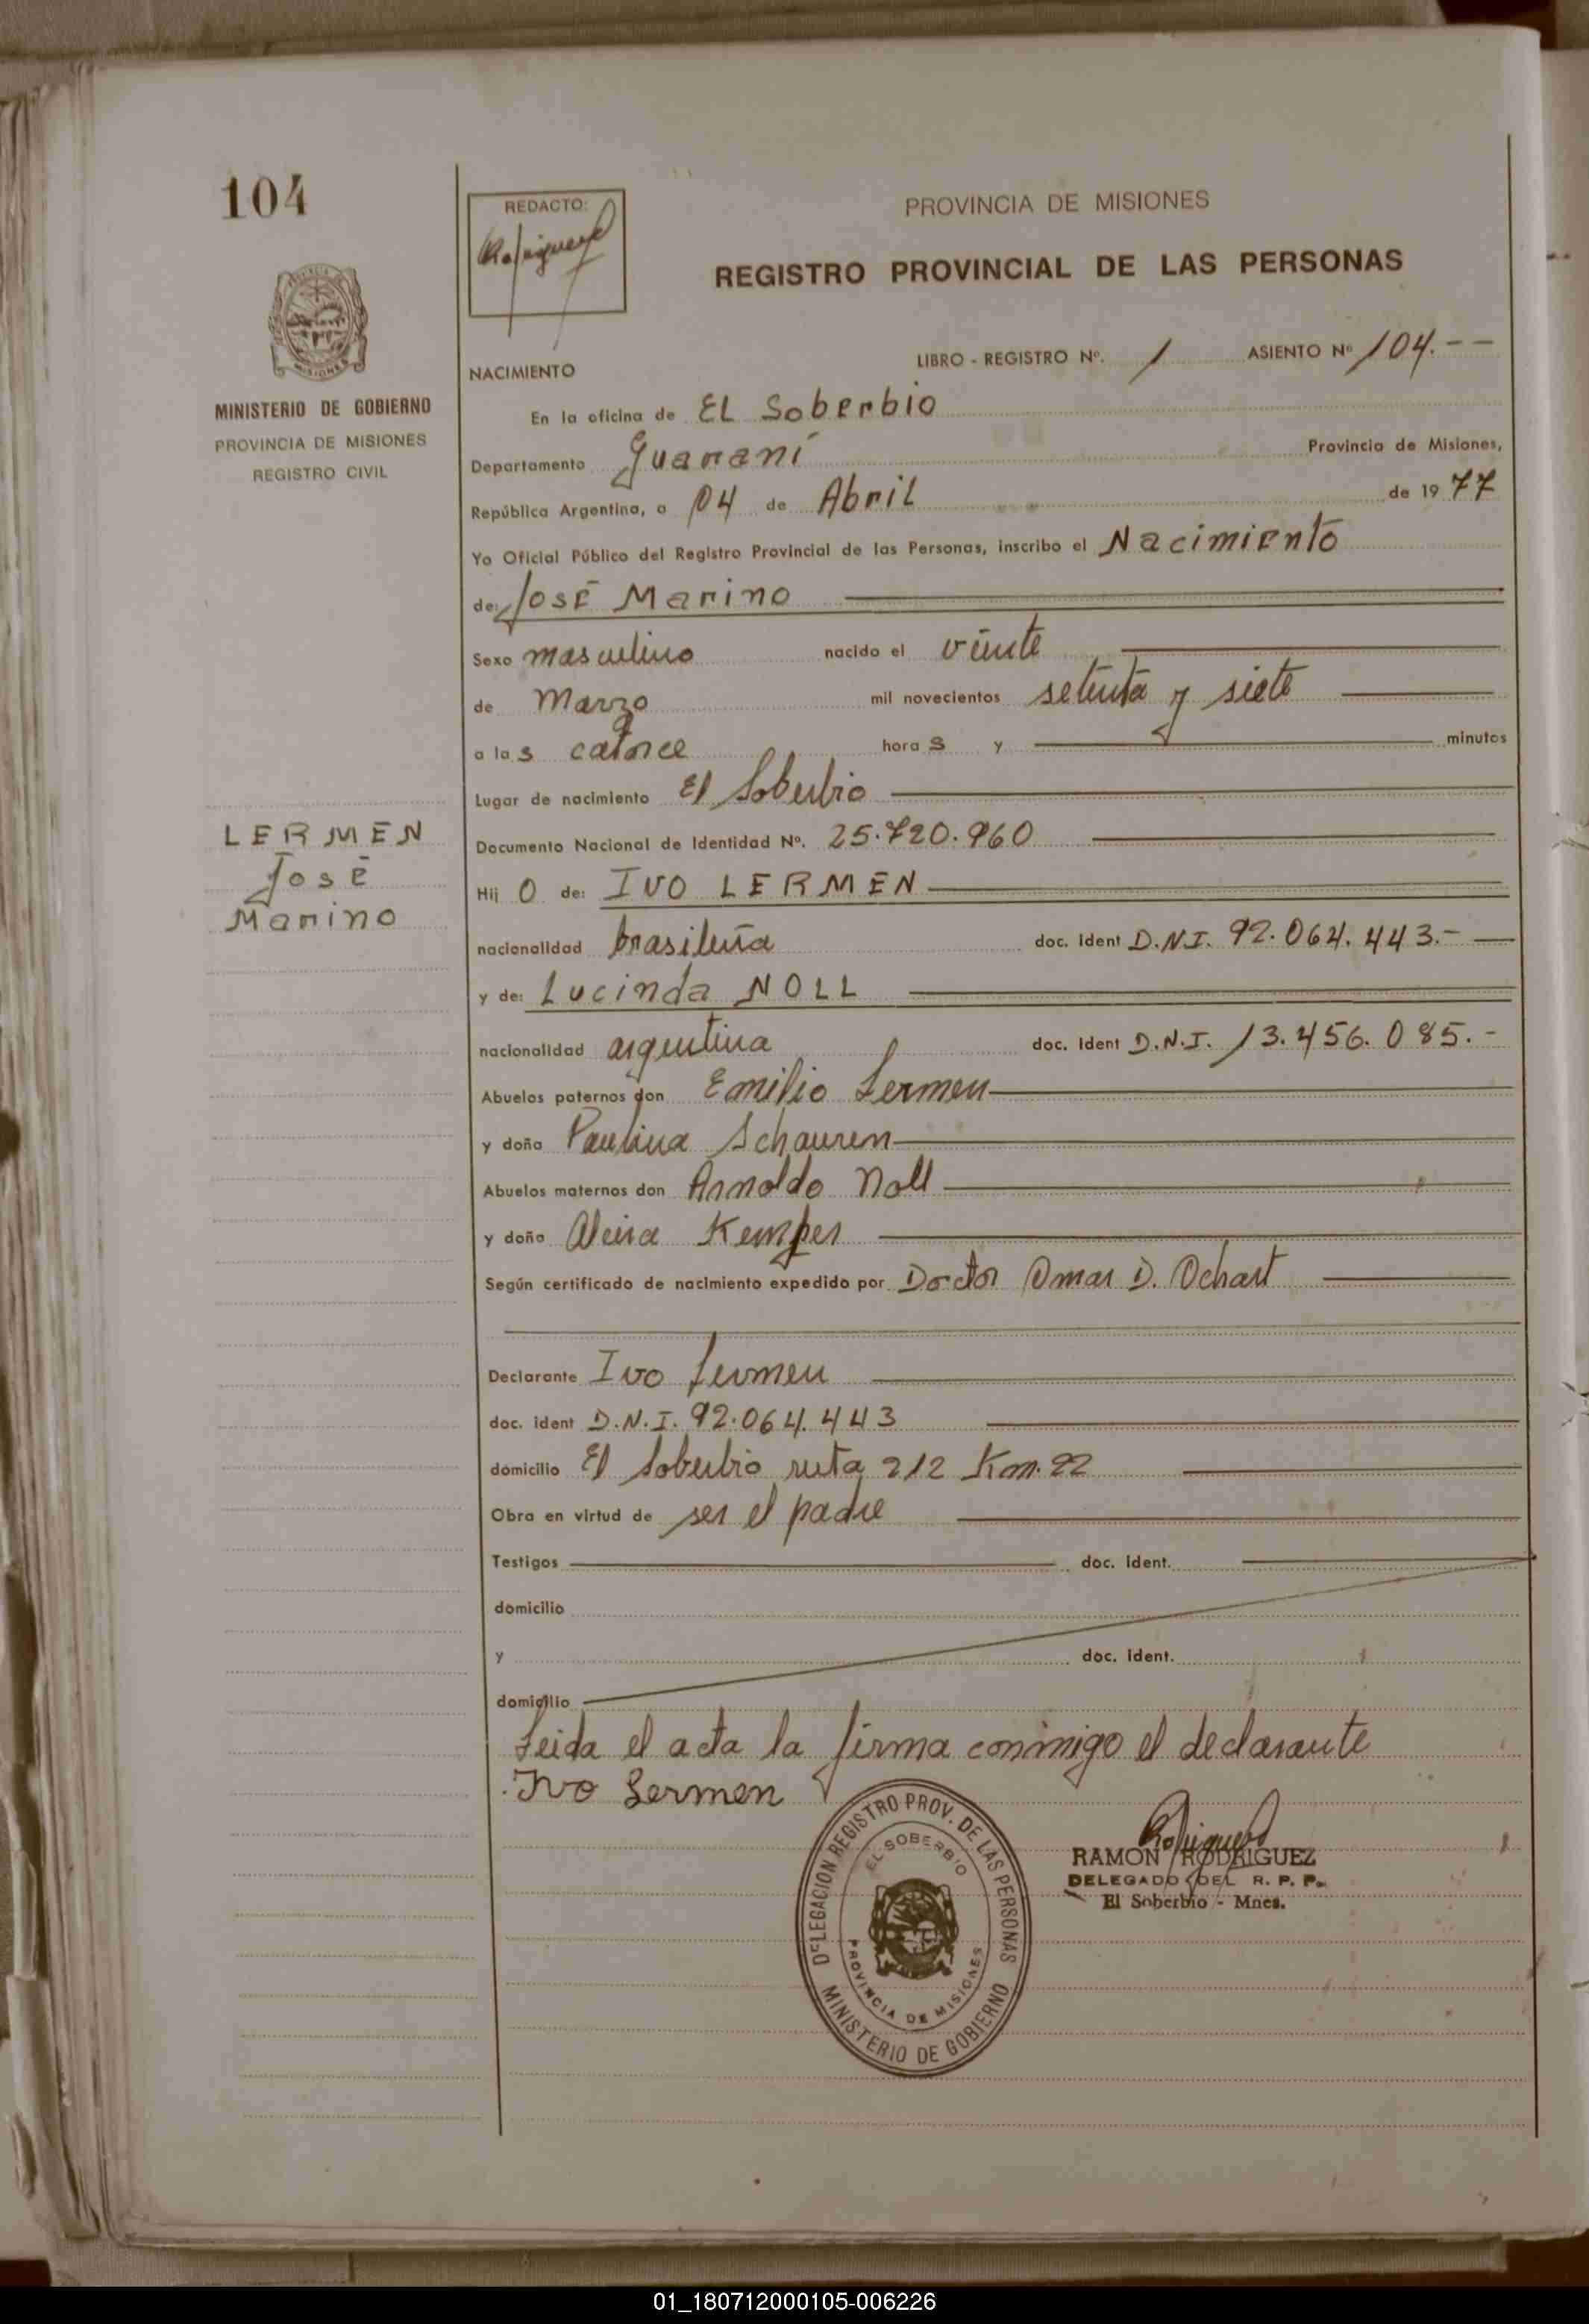 104
MINISTERIO DE GOBIERNO
PROVINCIA DE MISIONES
REGISTRO CIVIL
LERMEN
José
Marino
REDACTO:
Rodriguez
PROVINCIA DE MISIONES
REGISTRO PROVINCIAL DE LAS PERSONAS
LIBRO - REGISTRO Nº. 1 ASIENTO Nº 104.--
NACIMIENTO
En la oficina de EL Soberbio
Departamento Guaraní Provincia de Misiones,
República Argentina, a 04 de Abril de 1977
Yo Oficial Público del Registro Provincial de las Personas, inscribo el Nacimiento
de: José Marino
Sexo masculino nacido el veinte
de Marzo mil novecientos setenta y siete
a las catorce horas y minutos
Lugar de nacimiento El Soberbio
Documento Nacional de Identidad Nº. 25.720.960
Hijo de: IVO LERMEN
nacionalidad brasileña doc. ident D.N.I. 92.064.443.-
y de: Lucinda NOLL
nacionalidad argentina doc. ident D.N.I. 13.456.085.-
Abuelos paternos don Emilio Lermen
y doña Paulina Schauren
Abuelos maternos don Arnoldo Noll
y doña Alcira Kemper
Según certificado de nacimiento expedido por Doctor Omar D. Ochart
Declarante Ivo Lermen
doc. ident D.N.I. 92.064.443
domicilio El Soberbio ruta 212 Km. 22
Obra en virtud de ser el padre
Testigos doc. ident.
domicilio
y doc. ident.
domicilio
Leida el acta la firma conmigo el declarante
Ivo Lermen
DELEGACION REGISTRO PROV. DE LAS PERSONAS
EL SOBERBIO
PROVINCIA DE MISIONES
MINISTERIO DE GOBIERNO
Rodriguez
RAMON RODRIGUEZ
DELEGADO DEL R. P. P.
El Soberbio - Mnes.
01_180712000105-006226